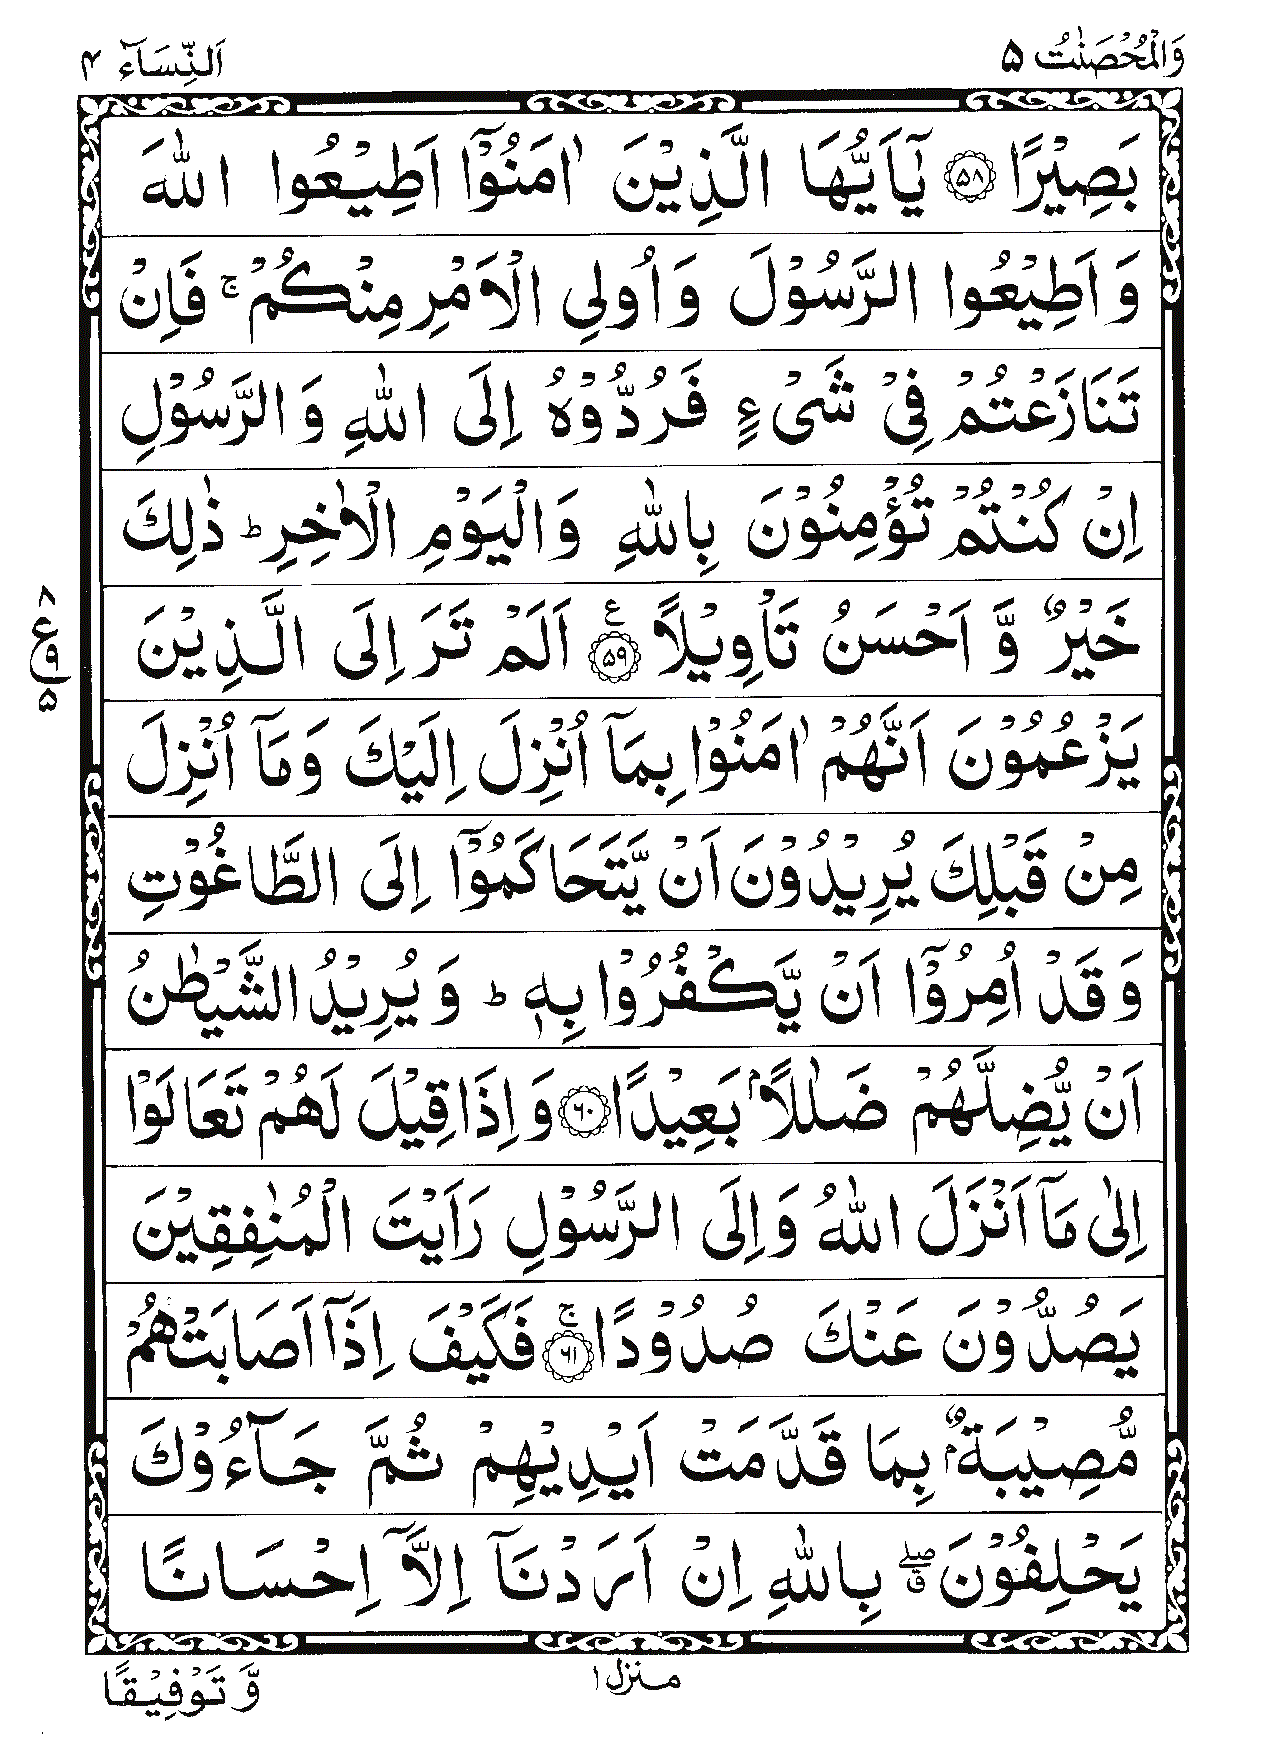 وَالْمُحْصَنٰتُ ۵ اَلنِّسَآء ۴
بَصِیْرًا ﴿۵۸﴾ یٰۤاَیُّهَا الَّذِیْنَ اٰمَنُوْۤا اَطِیْعُوا اللّٰهَ
وَ اَطِیْعُوا الرَّسُوْلَ وَ اُولِی الْاَمْرِ مِنْكُمْ ۚ فَاِنْ
تَنَازَعْتُمْ فِیْ شَیْءٍ فَرُدُّوْهُ اِلَی اللّٰهِ وَ الرَّسُوْلِ
اِنْ كُنْتُمْ تُؤْمِنُوْنَ بِاللّٰهِ وَ الْیَوْمِ الْاٰخِرِ ؕ ذٰلِكَ
خَیْرٌ وَّ اَحْسَنُ تَاْوِیْلًا ﴿۵۹﴾ ع اَلَمْ تَرَ اِلَی الَّذِیْنَ
۸ ع ۹ ۵
یَزْعُمُوْنَ اَنَّهُمْ اٰمَنُوْا بِمَاۤ اُنْزِلَ اِلَیْكَ وَ مَاۤ اُنْزِلَ
مِنْ قَبْلِكَ یُرِیْدُوْنَ اَنْ یَّتَحَاكَمُوْۤا اِلَی الطَّاغُوْتِ
وَ قَدْ اُمِرُوْۤا اَنْ یَّكْفُرُوْا بِهٖ ؕ وَ یُرِیْدُ الشَّیْطٰنُ
اَنْ یُّضِلَّهُمْ ضَلٰلًۢا بَعِیْدًا ﴿۶۰﴾ وَ اِذَا قِیْلَ لَهُمْ تَعَالَوْا
اِلٰی مَاۤ اَنْزَلَ اللّٰهُ وَ اِلَی الرَّسُوْلِ رَاَیْتَ الْمُنٰفِقِیْنَ
یَصُدُّوْنَ عَنْكَ صُدُوْدًا ﴿۶۱﴾ ۚ فَكَیْفَ اِذَاۤ اَصَابَتْهُمْ
مُّصِیْبَةٌۢ بِمَا قَدَّمَتْ اَیْدِیْهِمْ ثُمَّ جَآءُوْكَ
یَحْلِفُوْنَ ۖۗ بِاللّٰهِ اِنْ اَرَدْنَاۤ اِلَّاۤ اِحْسَانًا
منزل ۱
وَّ تَوْفِیْقًا